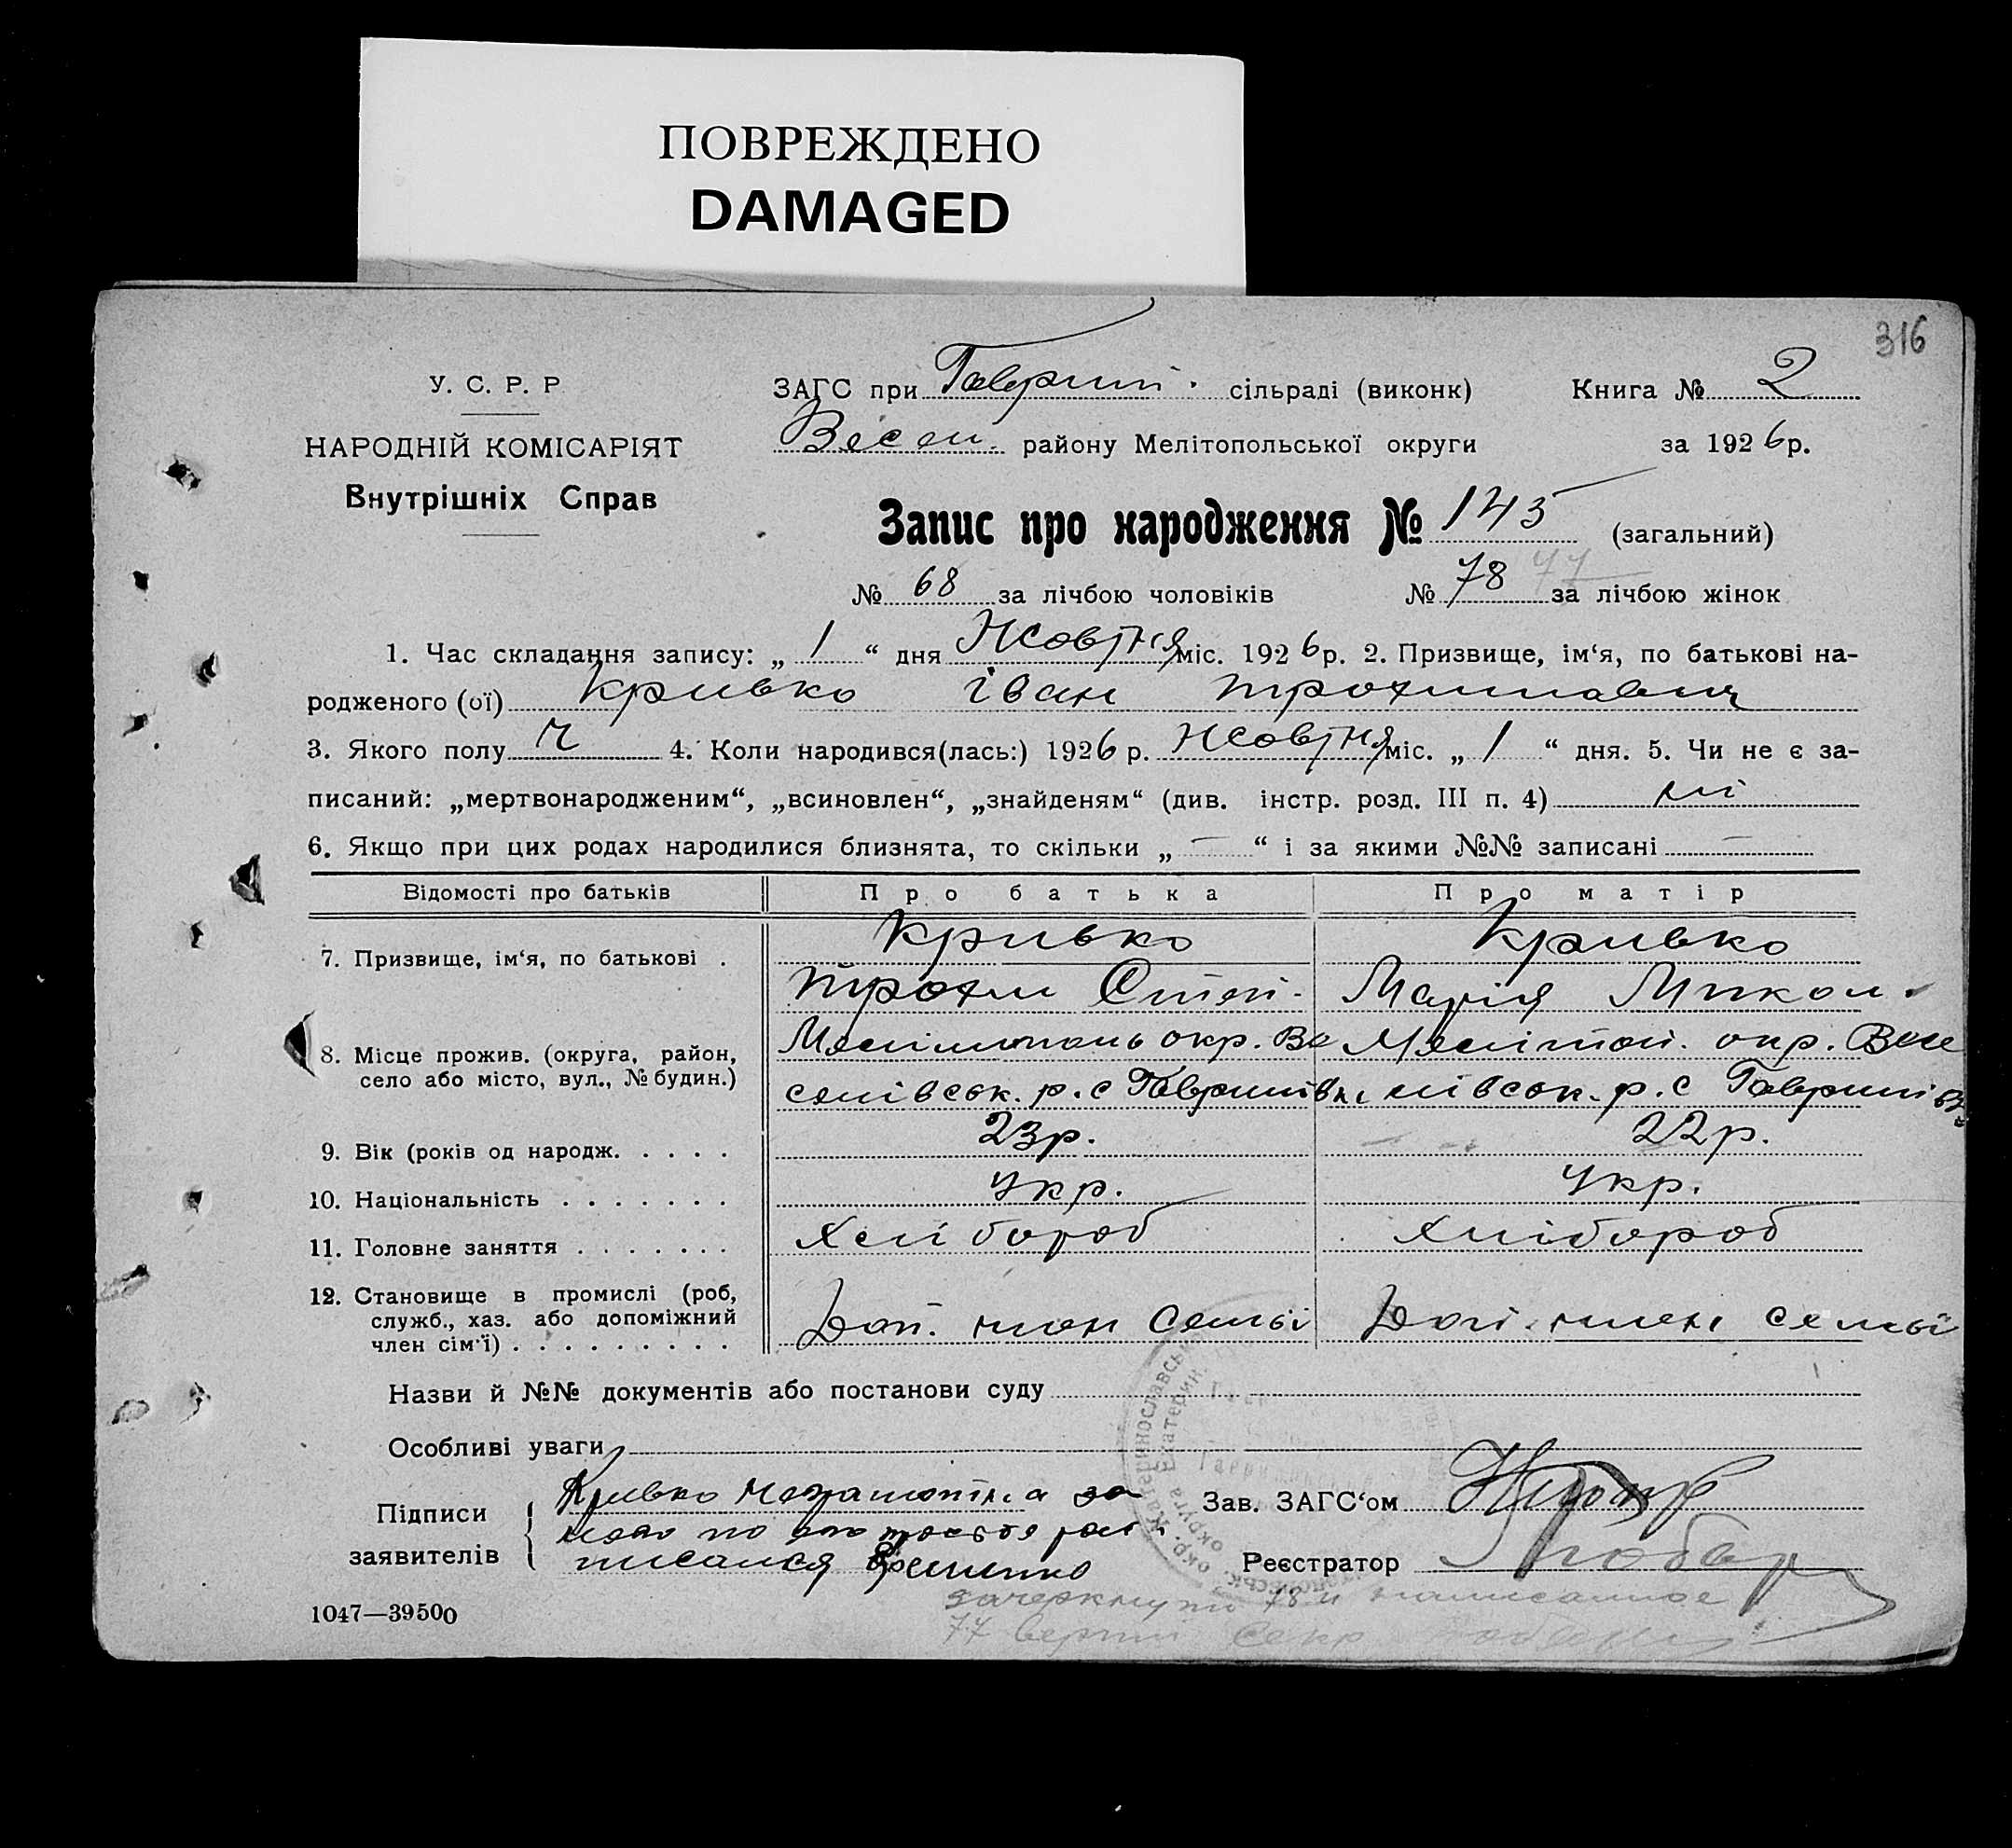 ПОВРЕЖДЕНО
DAMAGED
316
У. С. Р. Р
НАРОДНІЙ КОМІСАРІЯТ
Внутрішніх Справ
ЗАГС при Гаврил. сільраді (виконк) Книга № 2
Весел. району Мелітопольської округи за 1926р.
Запис про народження № 145 (загальний)
№ 68 за лічбою чоловіків № 78 77 за лічбою жінок
1. Час складання запису: „ 1 “ дня Жовтня міс. 1926р. 2. Призвище, ім‘я, по батькові на-
родженого (ої) Кривко Іван Трохимович
3. Якого полу ч 4. Коли народився(лась:) 1926 р. Жовтня міс. „ 1 “ дня. 5. Чи не є за-
писаний: „мертвонародженим“, „всиновлен“, „знайденям“ (див. інстр. розд. III п. 4) ні
6. Якщо при цих родах народилися близнята, то скільки „ — “ і за якими №№ записані —
Відомості про батьків Про батька Про матір
7. Призвище, ім‘я, по батькові . Кривко Кривко
Трохим Степ. Марія Микол.
8. Місце прожив. (округа, район, село або місто, вул., № будин.) Мелітополь окр. Ве Мелітоп. окр. Весе
селівськ. р. с Гаврилівк. лівськ. р. с Гаврилівк.
9. Вік (років од народж. . . . . 23р. 22р.
10. Національність . . . . . . . Укр. Укр.
11. Головне заняття . . . . . . . Хлібороб Хлібороб
12. Становище в промислі (роб,
служб., хаз. або допоміжний
член сім‘ї) . . . . . . . . . Доп. член семьї Доп. член семьї
Назви й №№ документів або постанови суду
Особливі уваги
Підписи заявителів Кривко за
його по рос
писался
Зав. ЗАГС‘ом
Реєстратор
зачеркнуто 78 и написанное
77 верно Секр
1047—39500